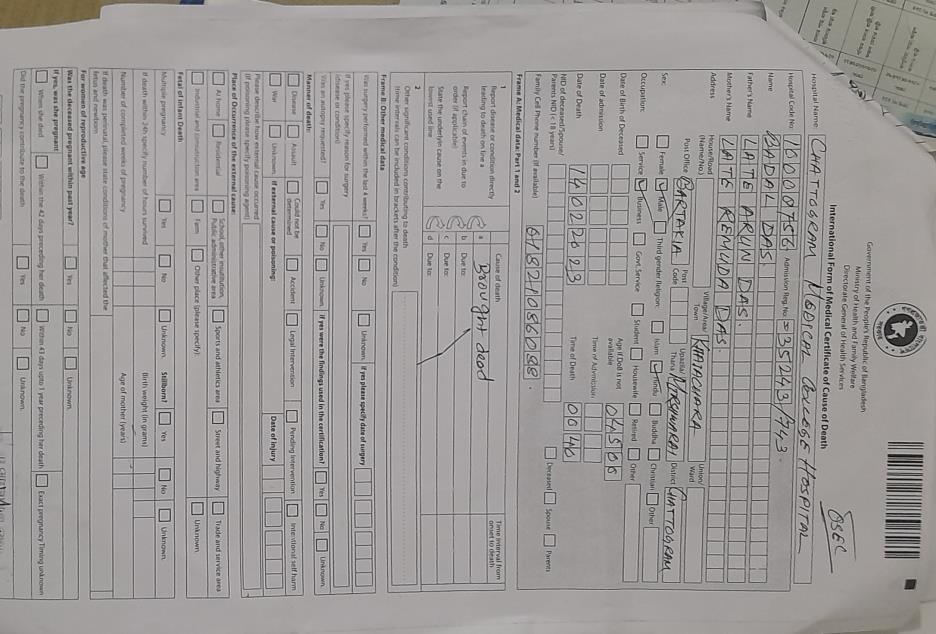 Government of the People's Republic of Bangladesh
Ministry of Health and Family Welfare
Directorate General of Health Services
International Form of Medical Certificate of Cause of Death
OSEC
Hospital Name: CHATTOGRAM MEDICAL COLLEGE HOSPITAL
Hospital Code No: 10000756 Admission Reg. No:
Name BADAL DAS.
Father's Name LATE ARUN DAS.
Mother's Name LATE RENUDA DAS.
Address House/Road (Name/No.) Village/Area/Town KHAIACHARA Union/Ward
Post Office BARTAKIA Post Code Upazila/Thana MIRSHWARAI District CHATTOGRAM
Sex: Female Male Third gender Religion: Islam Hindu Buddha Christian Other
Occupation: Service Business Govt. Service Student Housewife Retired Other
Date of Birth of Deceased Age if DoB is not available
Date of admission Time of Admission
Date of Death 14022023 Time of Death 0040
NID of deceased/Spouse/Parents (<18 years) NID Deceased Spouse Parents
Family Cell Phone Number (If available)
Frame A: Medical data: Part 1 and 2
1 Cause of death Time interval from onset to death
Report disease or condition directly leading to death on line a a Brought dead
Report chain of events in due to order (if applicable) b Due to:
State the underlying cause on the lowest used line c Due to:
d Due to:
2 Other significant conditions contributing to death (time intervals can be included in brackets after the condition)
Frame B: Other medical data
Was surgery performed within the last 4 weeks? Yes No Unknown If yes please specify date of surgery
If yes please specify reason for surgery (disease or condition)
Was an autopsy requested? Yes No Unknown If yes were the findings used in the certification? Yes No Unknown
Manner of death:
Disease Assault Could not be determined Accident Legal Intervention Pending Intervention Intentional self harm
War Unknown If external cause or poisoning: Date of injury
Please describe how external cause occurred (If poisoning please specify poisoning agent)
Place of Occurrence of the external cause:
At home Residential School, other institution, Public administrative area Sports and athletics area Street and highway Trade and service area
Industrial and construction area Farm Other place (please specify): Unknown
Fetal of Infant Death
Multiple pregnancy Yes No Unknown Stillborn? Yes No Unknown
If death within 24h specify number of hours survived Birth weight (in grams)
Number of completed weeks of pregnancy Age of mother (years)
If death was perinatal, please state conditions of mother that affected the fetus and newborn
For women of reproductive age
Was the deceased pregnant within past year? Yes No Unknown
If yes, was she pregnant:
When she died Within the 42 days preceding her death Within 43 days upto 1 year preceding her death Exact pregnancy Timing unknown
Did the pregnancy contribute to the death Yes No Unknown